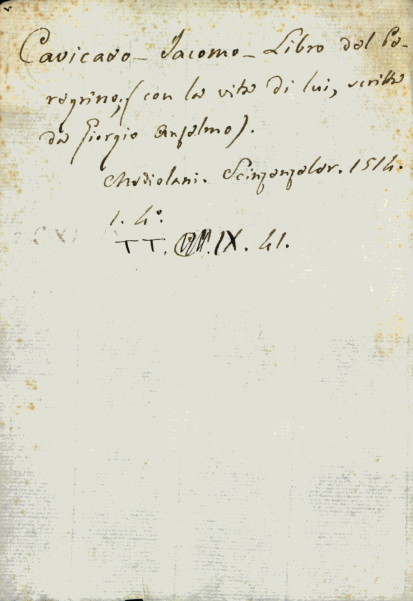 Cavicaso - Jacomo - Libro del Pe-
regrino; (con la vita di lui, scritta
da Giorgio Anselmo).
Mediolani. Scinzenzeler. 1514.
1. 4º.
TT. IX. 41.